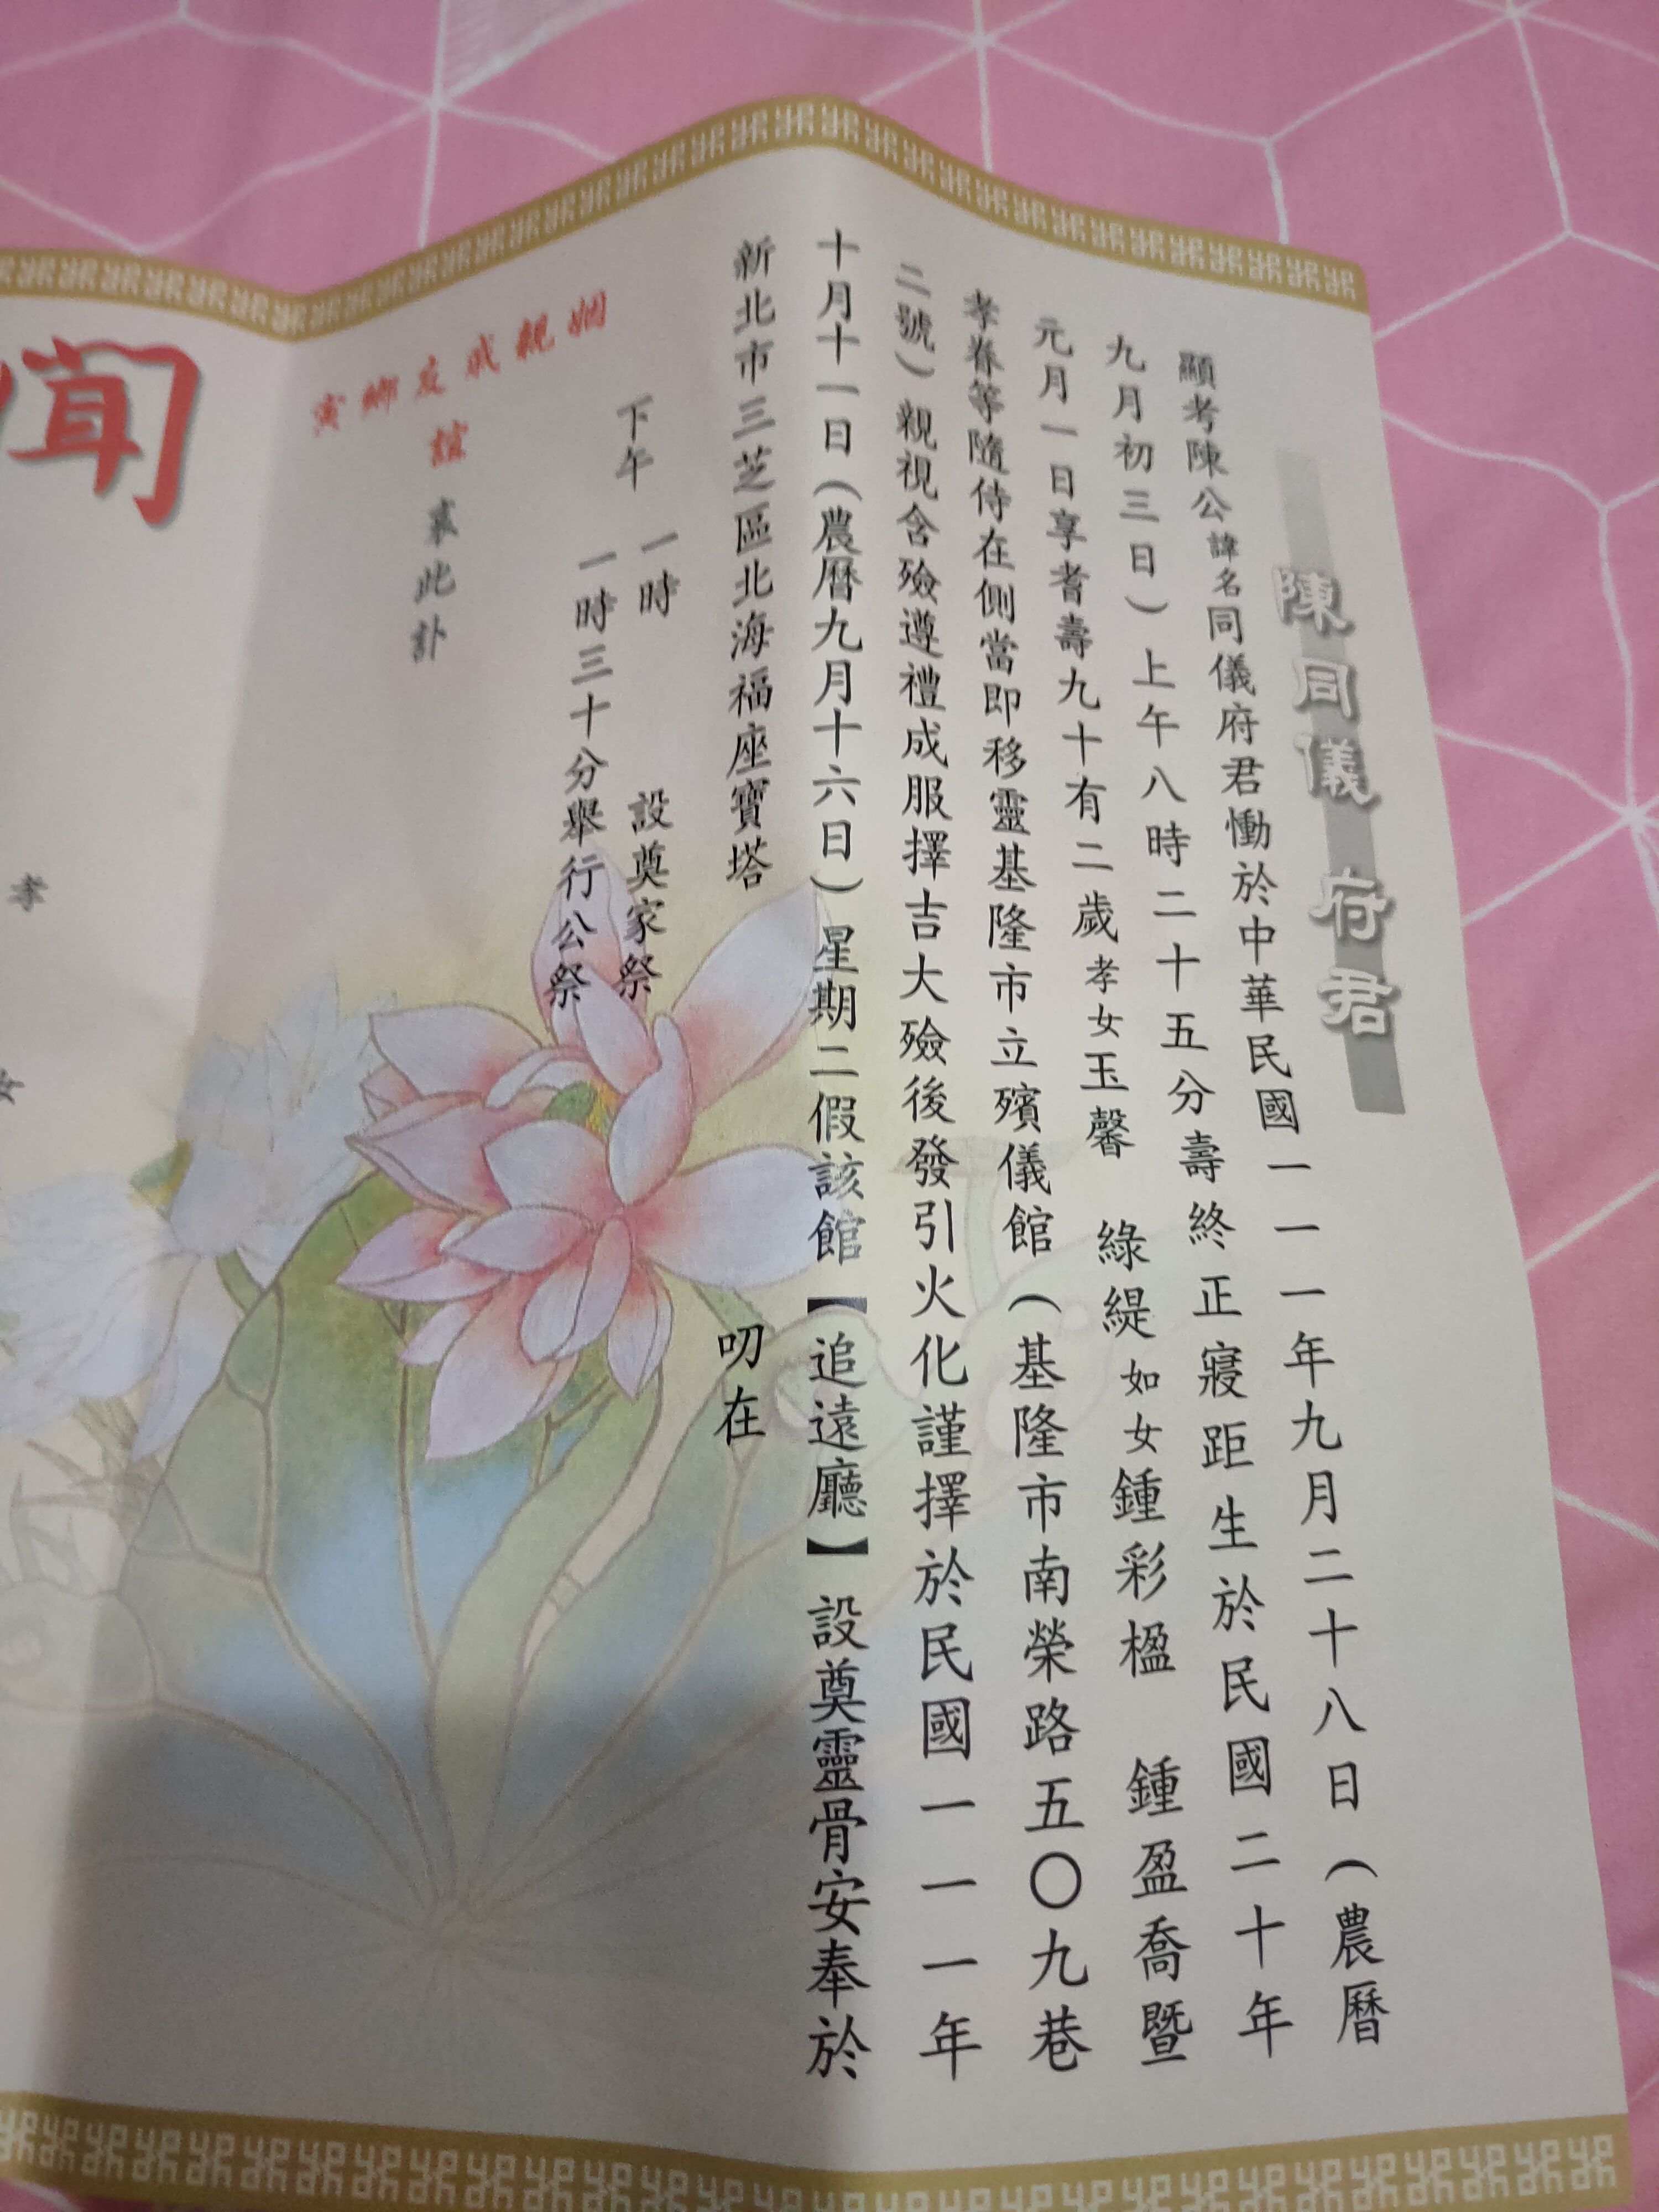 陳同儀 府君
顯考陳公諱名同儀府君慟於中華民國一一一年九月二十八日（農曆
九月初三日）上午八時二十五分壽終正寢距生於民國二十年
元月一日享耆壽九十有二歲孝女玉馨 綠緹如女鍾彩楹 鍾盈喬暨
孝眷等隨侍在側當即移靈基隆市立殯儀館（基隆市南榮路五〇九巷
二號）親視含殮遵禮成服擇吉大殮後發引火化謹擇於民國一一一年
十月十一日（農曆九月十六日）星期二假該館【追遠廳】設奠靈骨安奉於
新北市三芝區北海福座寶塔 叨在
下午 一時 設奠家祭
一時三十分舉行公祭
姻親戚友鄉寅
誼 哀此訃
聞
孝
女